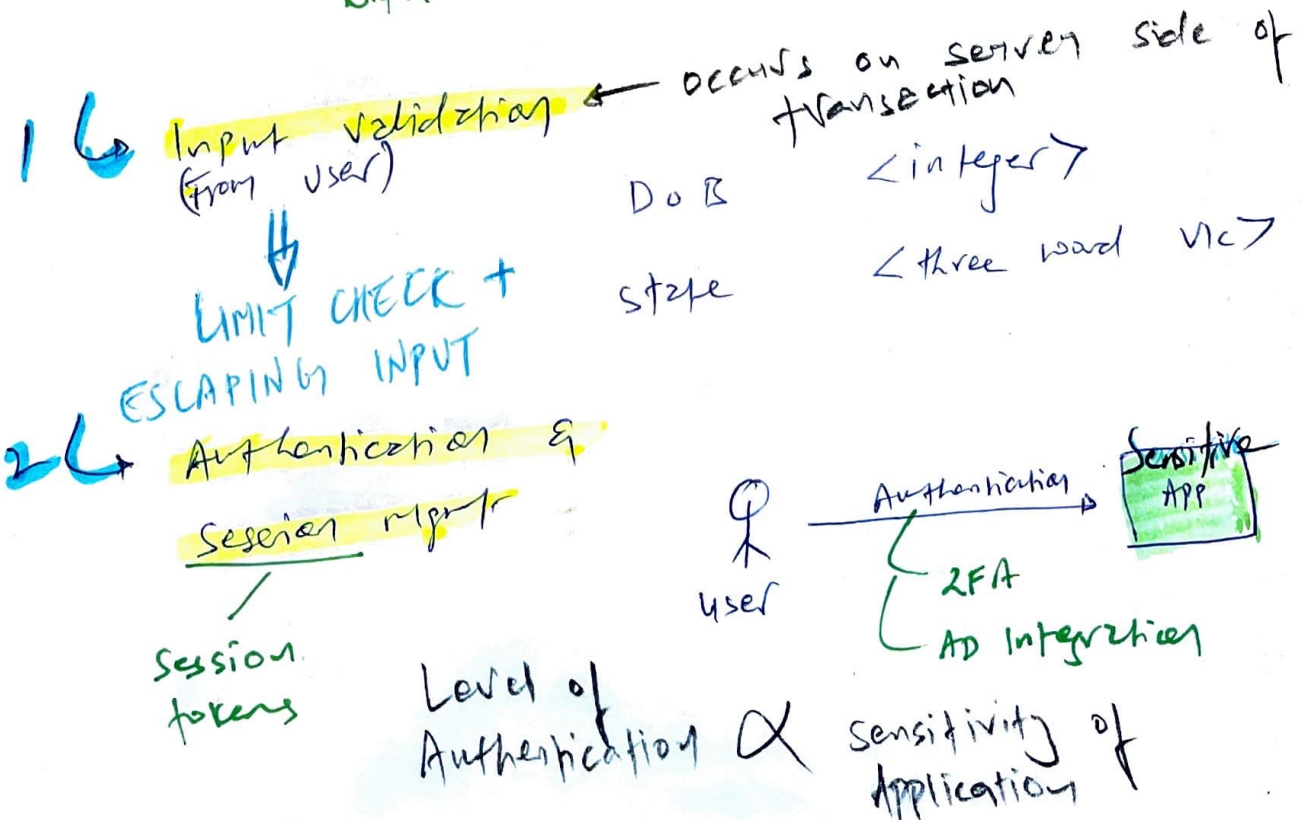 1 Input validation ← occurs on server side of
transaction
(From user)
DoB <integer>
State <three word VIC>
LIMIT CHECK +
ESCAPING INPUT
2 Authentication &
Session mgmt
Session
tokens
user
Authentication
Sensitive
APP
2FA
AD Integration
Level of
Authentication ∝ sensitivity of
Application